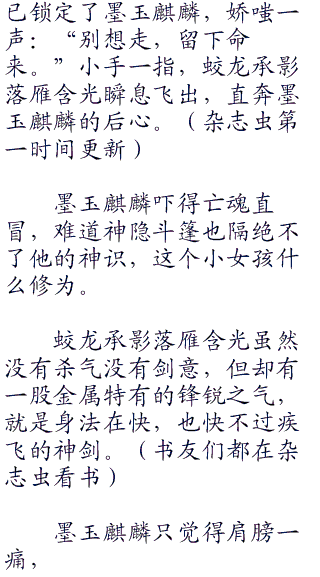 已锁定了墨玉麒麟，娇嗤一
声：“别想走，留下命
来。”小手一指，蛟龙承影
落雁含光瞬息飞出，直奔墨
玉麒麟的后心。（杂志虫第
一时间更新）
墨玉麒麟吓得亡魂直
冒，难道神隐斗篷也隔绝不
了他的神识，这个小女孩什
么修为。
蛟龙承影落雁含光虽然
没有杀气没有剑意，但却有
一股金属特有的锋锐之气，
就是身法在快，也快不过疾
飞的神剑。（书友们都在杂
志虫看书）
墨玉麒麟只觉得肩膀一
痛，